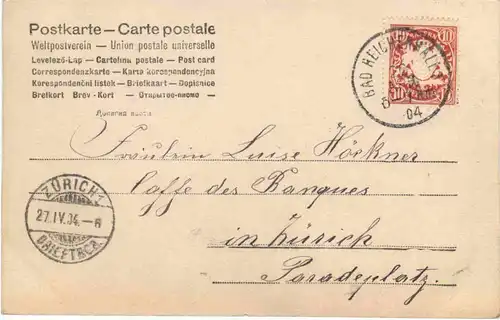 Postkarte – Carte postale
Weltpostverein – Union postale universelle
Levelező-Lap – Cartolina postale – Post card
Correspondenzkarte – Karta korespondencyjna
Korespondenční lístek – Briefkaart – Dopisnice
Brefkort Brev-Kort – Открытое письмо –
10 10
BAD REICHENHALL
04
Fräulein Luise Höckner
Caffe des Banques
in Zürich
Paradeplatz.
ZÜRICH 1
27.IV.04.–6
BRIEFTRÄG.